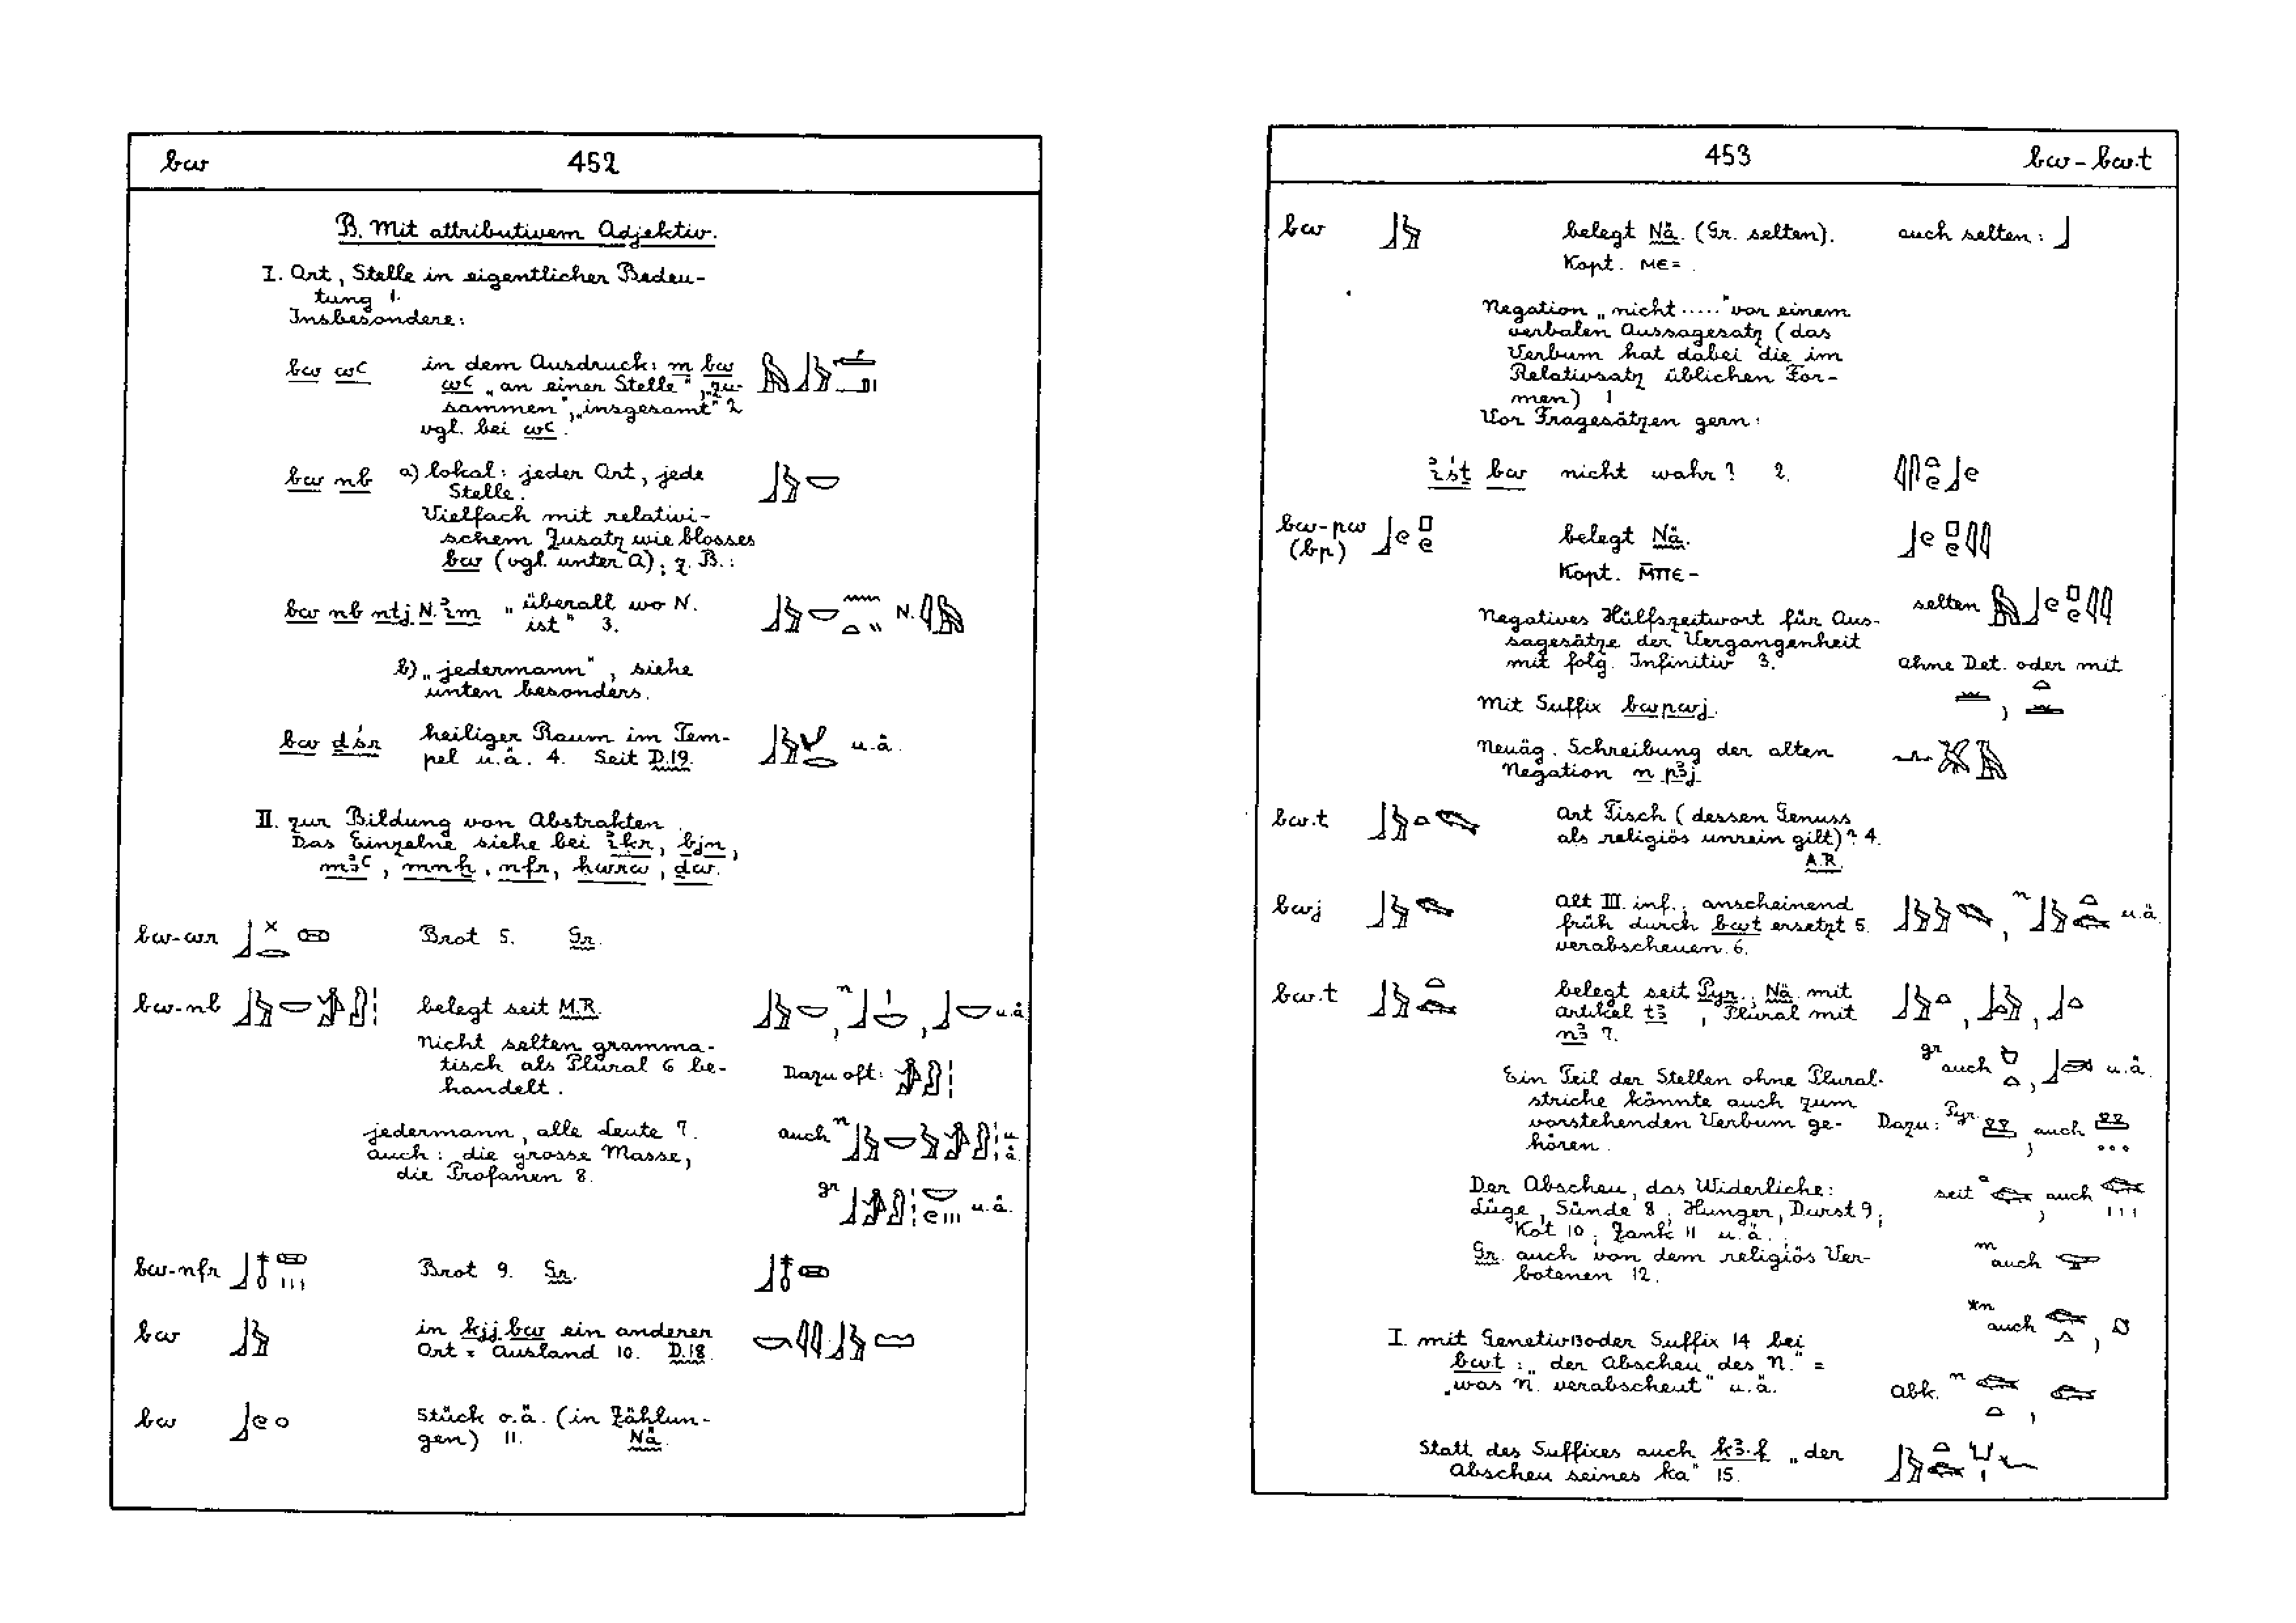 bw 452
B. Mit attributivem Adjektiv.
I. Ort, Stelle in eigentlicher Bedeu-
tung 1.
Insbesondere:
bw wꜥ in dem Ausdruck: m bw
wꜥ „an einer Stelle", „zu-
sammen", „insgesamt" 2
vgl. bei wꜥ.
bw nb a) lokal: jeder Ort, jede
Stelle.
Vielfach mit relativi-
schem Zusatz wie blosses
bw (vgl. unter A); z. B.:
bw nb ntj N. ꜣim „überall wo N. N.
ist" 3.
b) „jedermann", siehe
unten besonders.
bw dśr heiliger Raum im Tem- u.ä.
pel u.ä. 4. Seit D.19.
II. zur Bildung von Abstrakten
Das Einzelne siehe bei ikr, bjn,
mꜣꜥ, mnḫ, nfr, ḥwrw, ḏw.
bw-wr Brot 5. Gr.
bw-nb belegt seit M.R. n , , u.ä
Nicht selten gramma-
tisch als Plural 6 be- Dazu oft:
handelt.
jedermann, alle Leute 7. auch n u.ä.
auch: die grosse Masse,
die Profanen 8.
gr u.ä.
bw-nfr Brot 9. Gr.
bw in kjj bw ein anderer
Ort = Ausland 10. D.18.
bw Stück o.ä. (in Zählun-
gen) 11. Nä.
453 bw - bw.t
bw belegt Nä. (Gr. selten). auch selten:
Kopt. ⲙⲉ= .
Negation „nicht ....." vor einem
verbalen Aussagesatz (das
Verbum hat dabei die im
Relativsatz üblichen For-
men) 1
Vor Fragesätzen gern:
ist bw nicht wahr? 2.
bw-pw belegt Nä.
(bp)
Kopt. ⲙ̄ⲡⲉ-
selten
Negatives Hülfszeitwort für Aus-
sagesätze der Vergangenheit
mit folg. Infinitiv 3. ohne Det. oder mit
Mit Suffix bwpwj. ,
Neuäg. Schreibung der alten
Negation n pꜣj
bw.t Art Fisch (dessen Genuss
als religiös unrein gilt)? 4.
A.R.
bwj Alt III. inf.; anscheinend n
früh durch bwt ersetzt 5. , u.ä.
verabscheuen. 6.
bw.t belegt seit Pyr.; Nä. mit
Artikel tꜣ , Plural mit , ,
nꜣ 7.
gr auch , u.ä.
Ein Teil der Stellen ohne Plural-
striche könnte auch zum
vorstehenden Verbum ge- Dazu: Pyr. , auch
hören.
Der Abscheu, das Widerliche: seit , auch
Lüge, Sünde 8; Hunger, Durst 9;
Kot 10; Zank 11 u.ä.
Gr. auch von dem religiös Ver- m auch
botenen 12.
*n auch ,
I. mit Genetiv 13 oder Suffix 14 bei
bwt: „der Abscheu des N." =
„was N. verabscheut" u.ä. abk. n ,
Statt des Suffixes auch kꜣ.f „der
Abscheu seines Ka" 15.